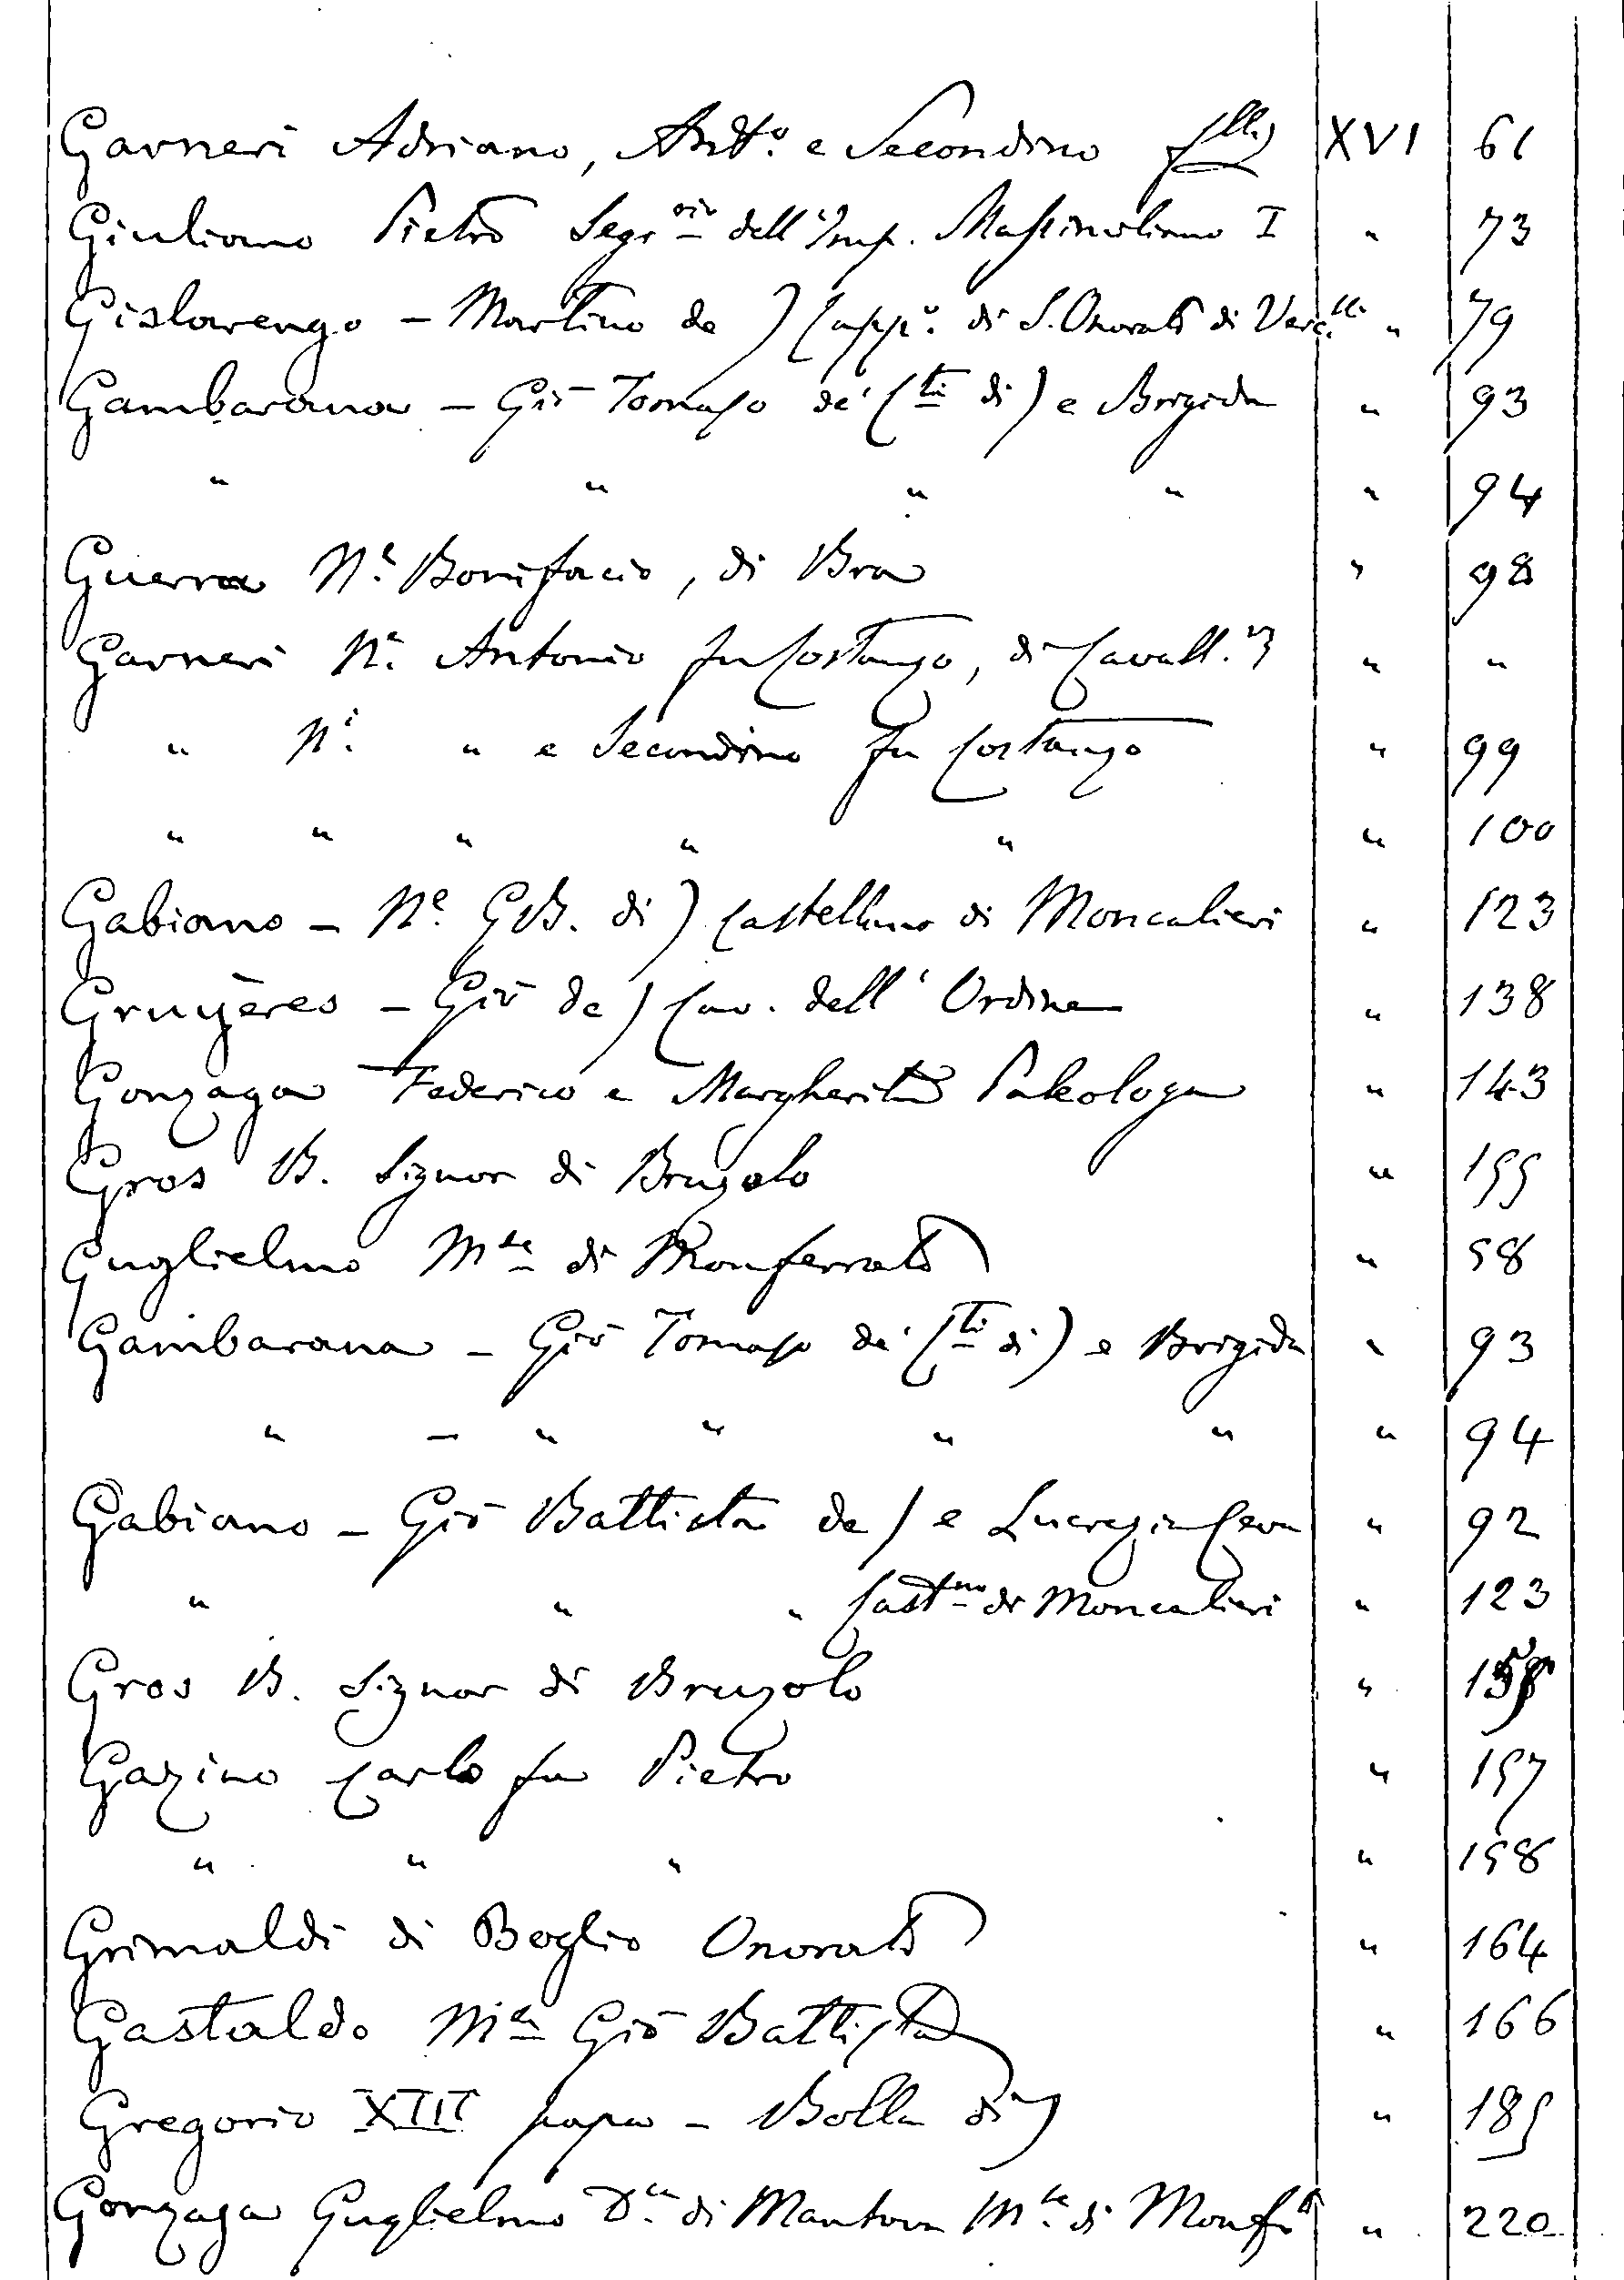 Garneri Adriano, Ant.º e Secondino f.lli XVI 61
Giuliano Pietro Segr.rio dell'Imp. Massimiliano I " 73
Gislarengo - Martino de) Capp.º di S. Onorato di Verc.lli " 79
Gambarana - Giò Tomaso de' (C.ti di) e Brigida " 93
" " " " " 94
Guerra N.e Bonifacio, di Bra " 98
Garneri N.e Antonio fu Costanzo, di Cavall. " "
" N.i " e Secondino fu Costanzo " 99
" " " " " " 100
Gabiano - N.e G.B. di) Castellano di Moncalieri " 123
Gruyères - Giò de) Cav. dell'Ordine " 138
Gonzaga Federico e Margherita Paleologa " 143
Gros B. Signor di Bruzolo " 155
Guglielmo M.se di Monferrato " 58
Gambarana - Giò Tomaso de' (C.ti di) e Brigida " 93
" - " " " " " 94
Gabiano - Giò Battista de) e Lucrezia Ceva " 92
" " " Cast.no di Moncalieri " 123
Gros B. Signor di Bruzolo "
Gazino Carlo fu Pietro " 157
" " " " 158
Grimaldi di Boglio Onorato " 164
Gastaldo Giò Battista " 166
Gregorio XIII papa - Bolla di) " 185
Gonzaga Guglielmo D.ca di Mantova M.se di Monf.to " 220